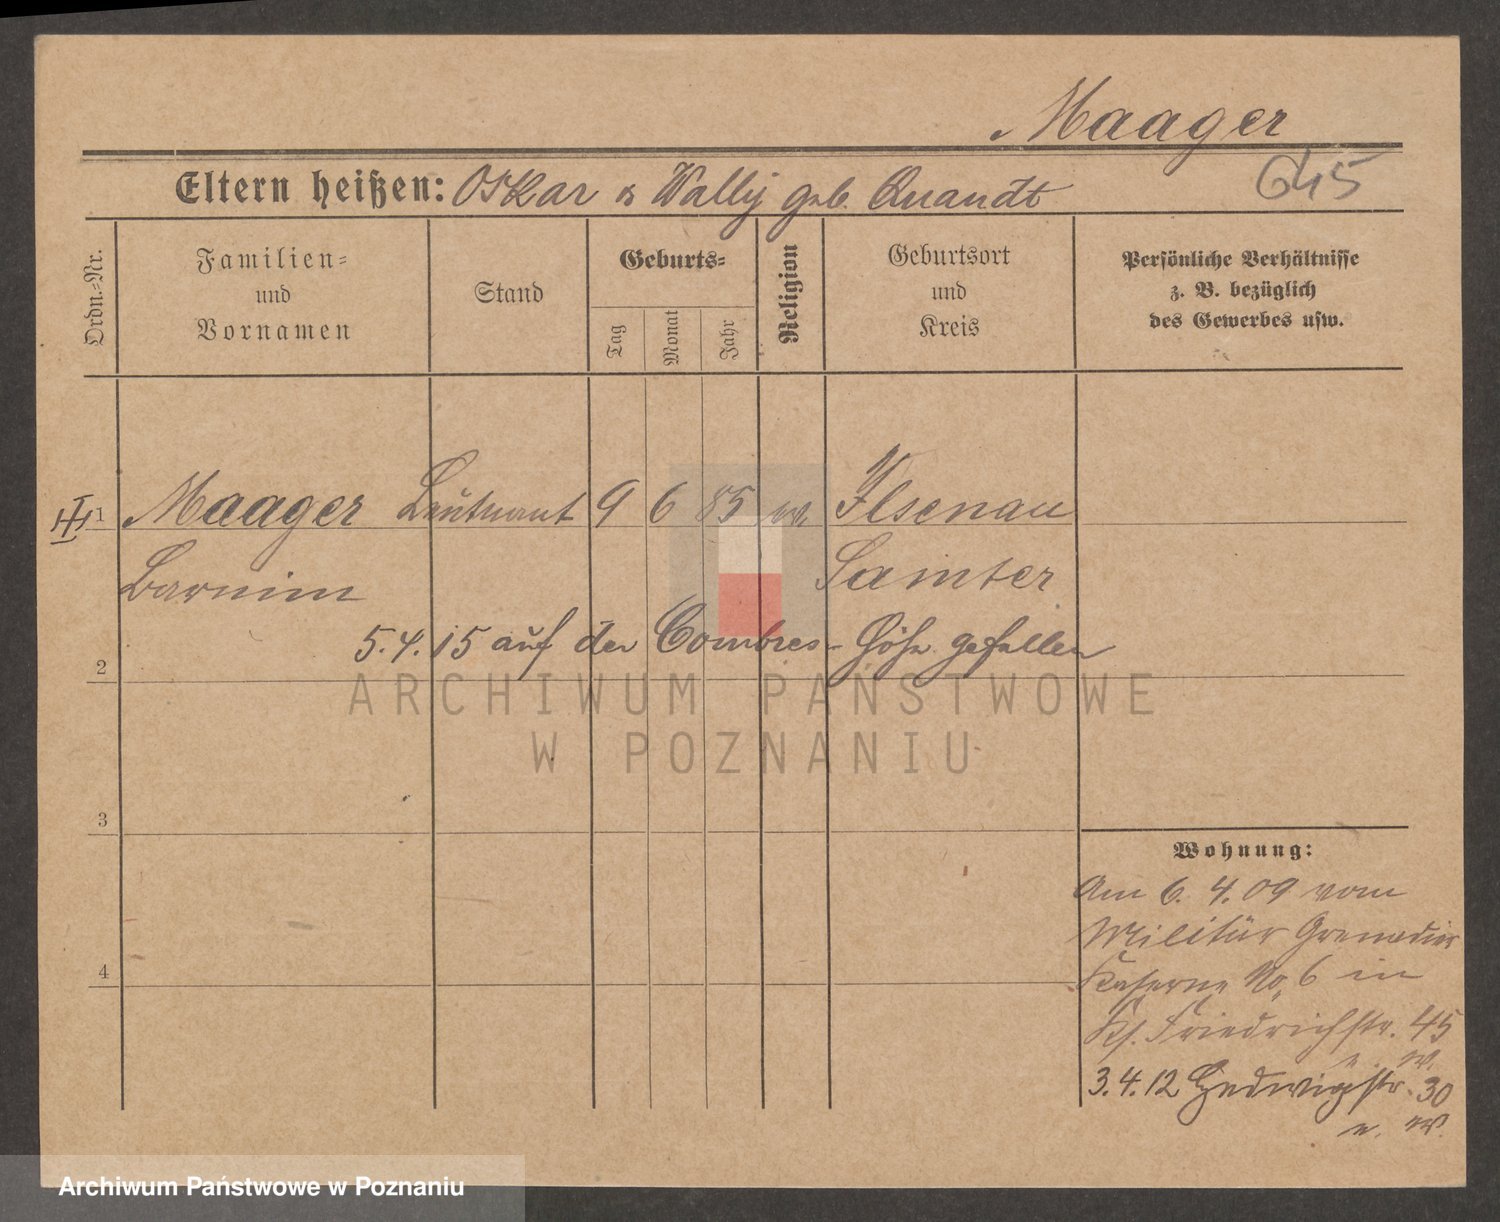 Maager
645
Eltern heißen: Oskar u Wally geb. Quandt
Ordn.-Nr.
Familien-
und
Vornamen
Stand
Geburts-
Tag
Monat
Jahr
Religion
Geburtsort
und
Kreis
Persönliche Verhältnisse
z. B. bezüglich
des Gewerbes usw.
1 Maager Leutnant 9 6 85 ev. Ilsenau
Barnim Samter
5.4.15 auf der Combres-Höhe gefallen
2
3
4
Wohnung:
Am 6. 4. 09 vom
Militär Grenadier
Kaserne No 6 in
Friedrichstr. 45
3.4.12 Hedwigstr. 30
ARCHIWUM PAŃSTWOWE
W POZNANIU
Archiwum Państwowe w Poznaniu